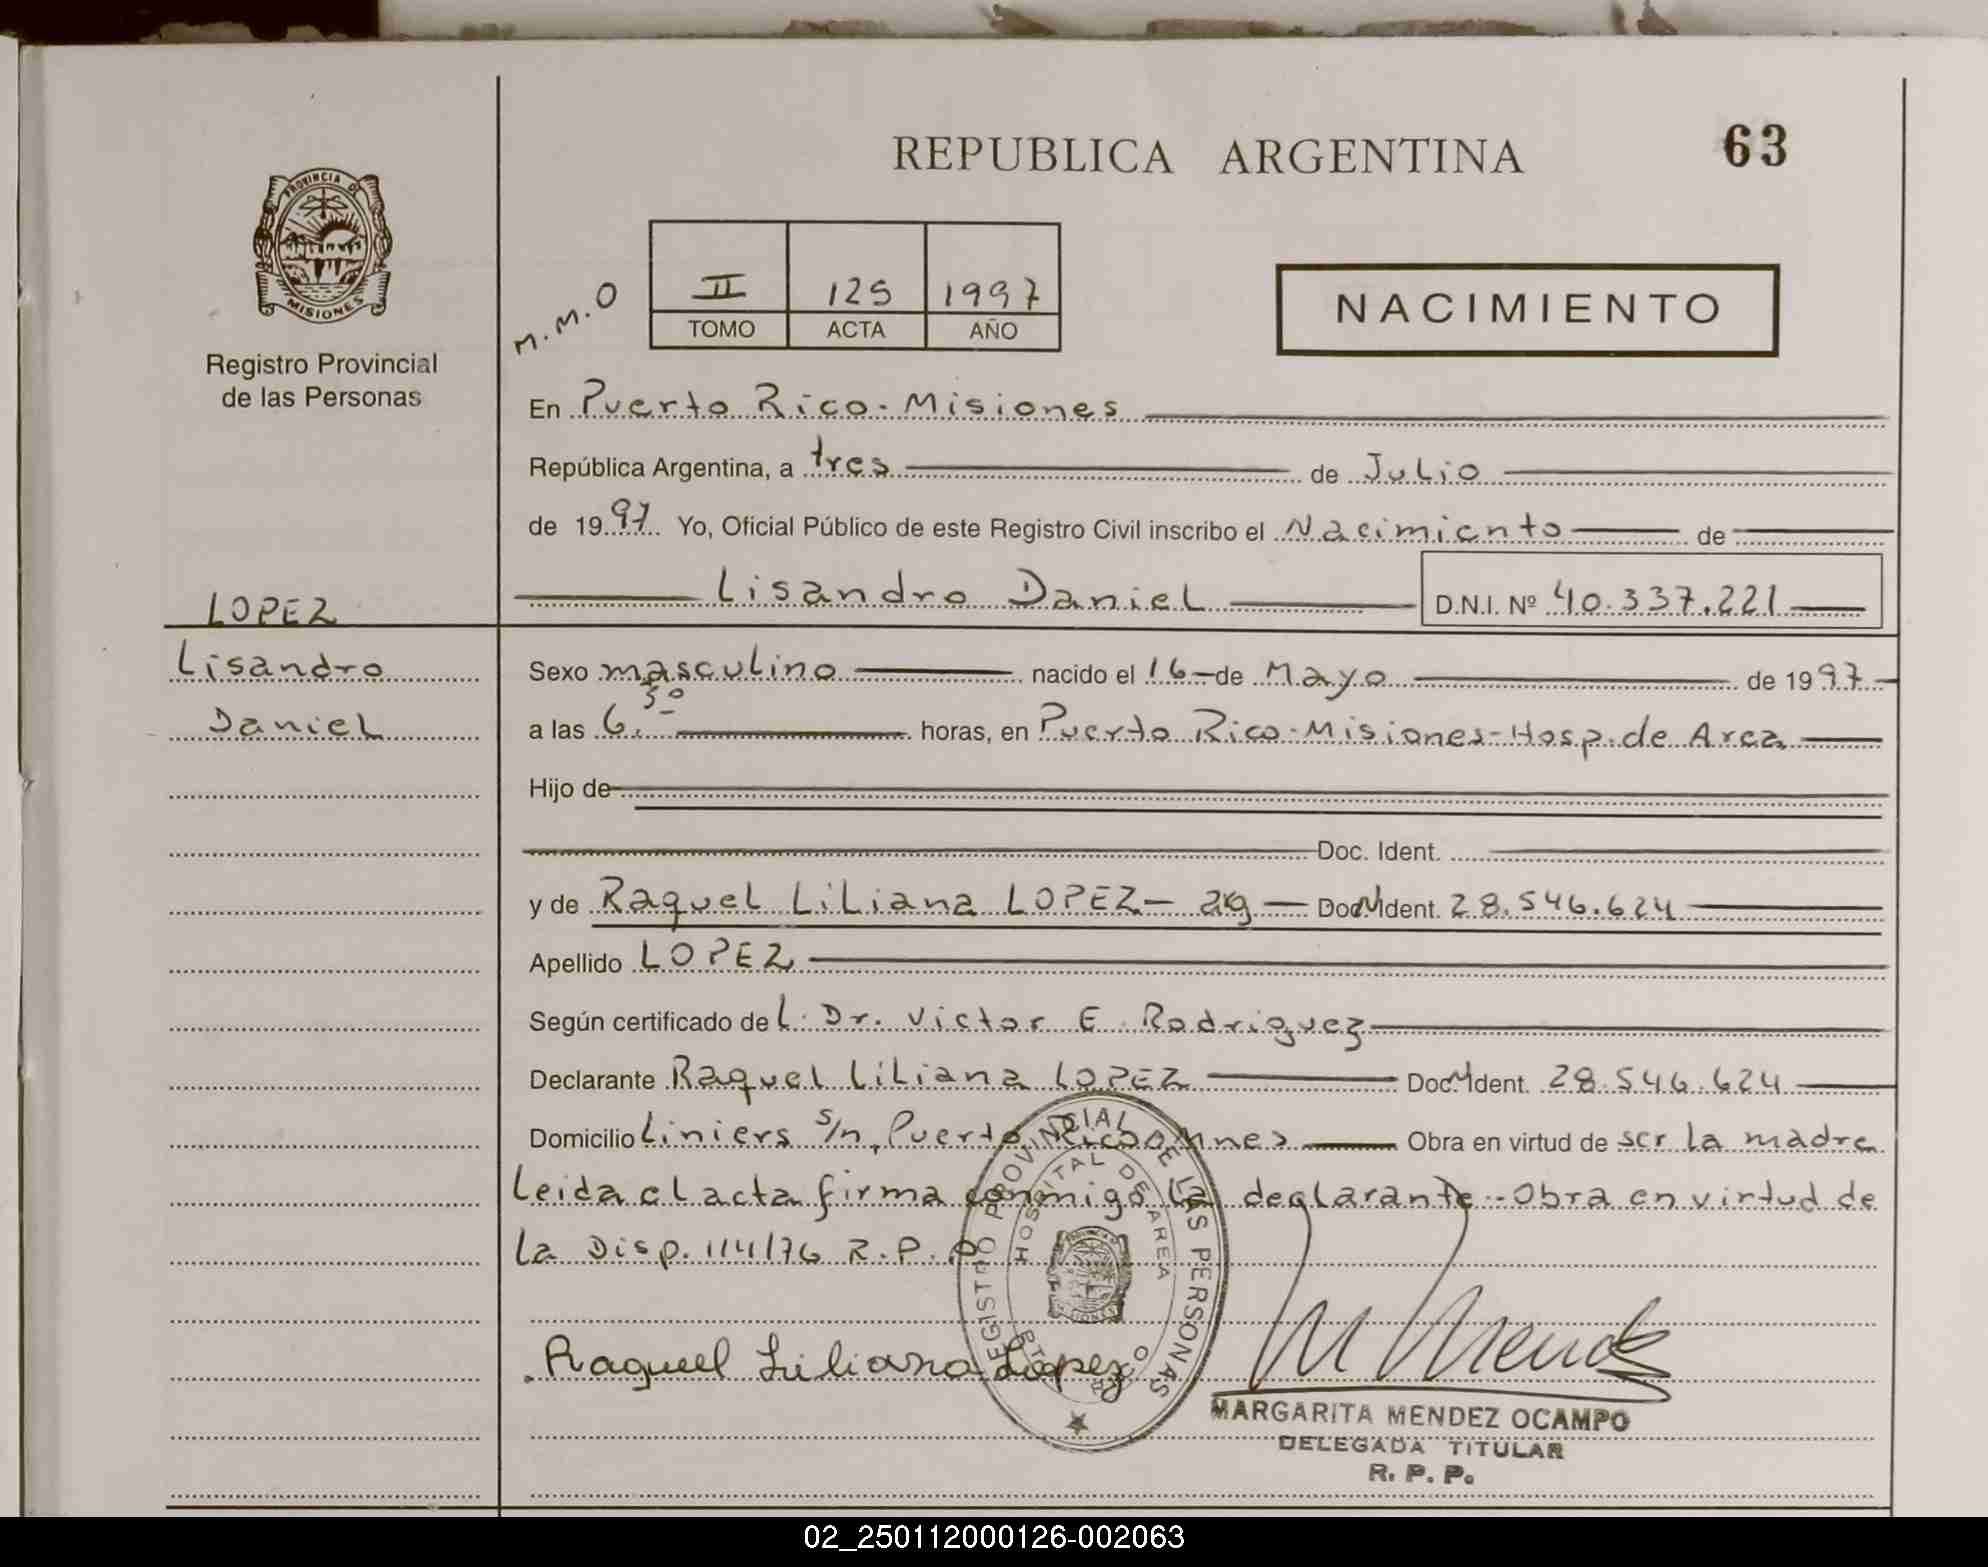 REPUBLICA ARGENTINA
63
PROVINCIA DE
MISIONES
Registro Provincial
de las Personas
M.M.O
II 125 1997
TOMO ACTA AÑO
NACIMIENTO
En Puerto Rico - Misiones
República Argentina, a tres de Julio
de 1997 Yo, Oficial Público de este Registro Civil inscribo el Nacimiento de
Lisandro Daniel D.N.I. Nº 40.337.221
LOPEZ
Lisandro
Daniel
Sexo masculino nacido el 16 de Mayo de 1997
a las 6.30 horas, en Puerto Rico - Misiones - Hosp. de Area
Hijo de
Doc. Ident.
y de Raquel Liliana LOPEZ - arg - Doc. Ident. 28.546.624
Apellido LOPEZ
Según certificado del Dr. Victor E. Rodriguez
Declarante Raquel Liliana LOPEZ Doc. Ident. 28.546.624
Domicilio Liniers s/n, Puerto Rico Mnes Obra en virtud de ser la madre
Leida el acta firma conmigo la declarante.- Obra en virtud de
la Disp. 114/76 R.P.P
REGISTRO PROVINCIAL DE LAS PERSONAS
HOSPITAL DE AREA
PTO. RICO
Raquel Liliana Lopez
M Mendez
MARGARITA MENDEZ OCAMPO
DELEGADA TITULAR
R. P. P.
02_250112000126-002063